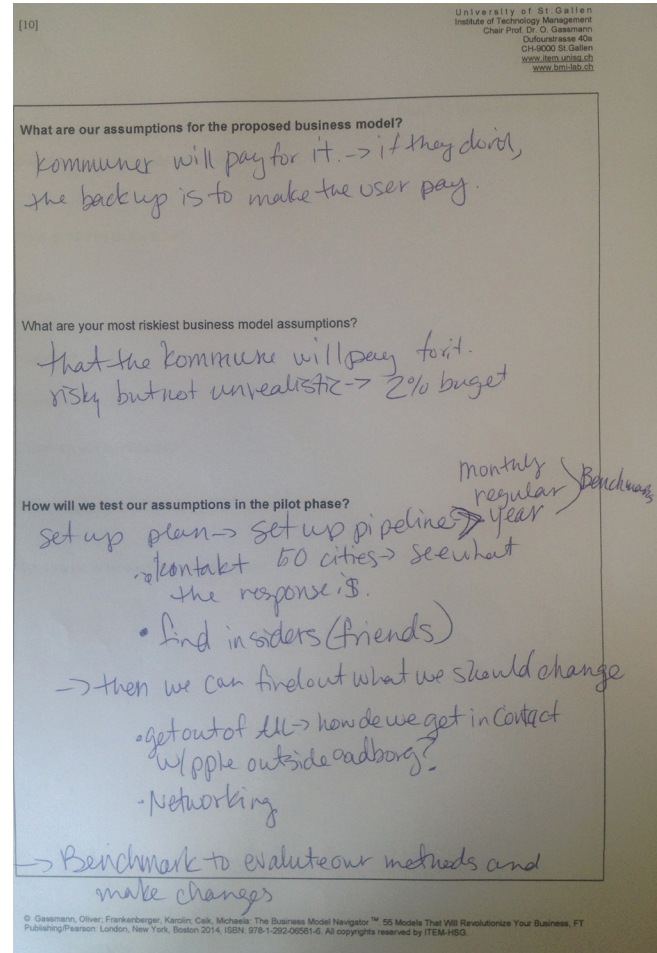 [10]
University of St.Gallen
Institute of Technology Management
Chair Prof. Dr. O. Gassmann
Dufourstrasse 40a
CH-9000 St.Gallen
www.item.unisg.ch
www.bmi-lab.ch
What are our assumptions for the proposed business model?
Kommuner will pay for it. -> if they don't,
the backup is to make the user pay.
What are your most riskiest business model assumptions?
that the kommune will pay for it.
risky but not unrealistic -> 2% buget
How will we test our assumptions in the pilot phase?
monthly
regular
year
Benchmarks
set up plan -> set up pipeline ->
kontakt 50 cities -> see what
the response is.
• find insiders (friends)
-> then we can find out what we should change
• get out of -> how do we get in contact
w/ pple outside aalborg?
• Networking
-> Benchmark to evalute our methods and
make changes
© Gassmann, Oliver; Frankenberger, Karolin; Csik, Michaela: The Business Model Navigator ™ 55 Models That Will Revolutionize Your Business, FT
Publishing/Pearson: London, New York, Boston 2014, ISBN: 978-1-292-06581-6. All copyrights reserved by ITEM-HSG.